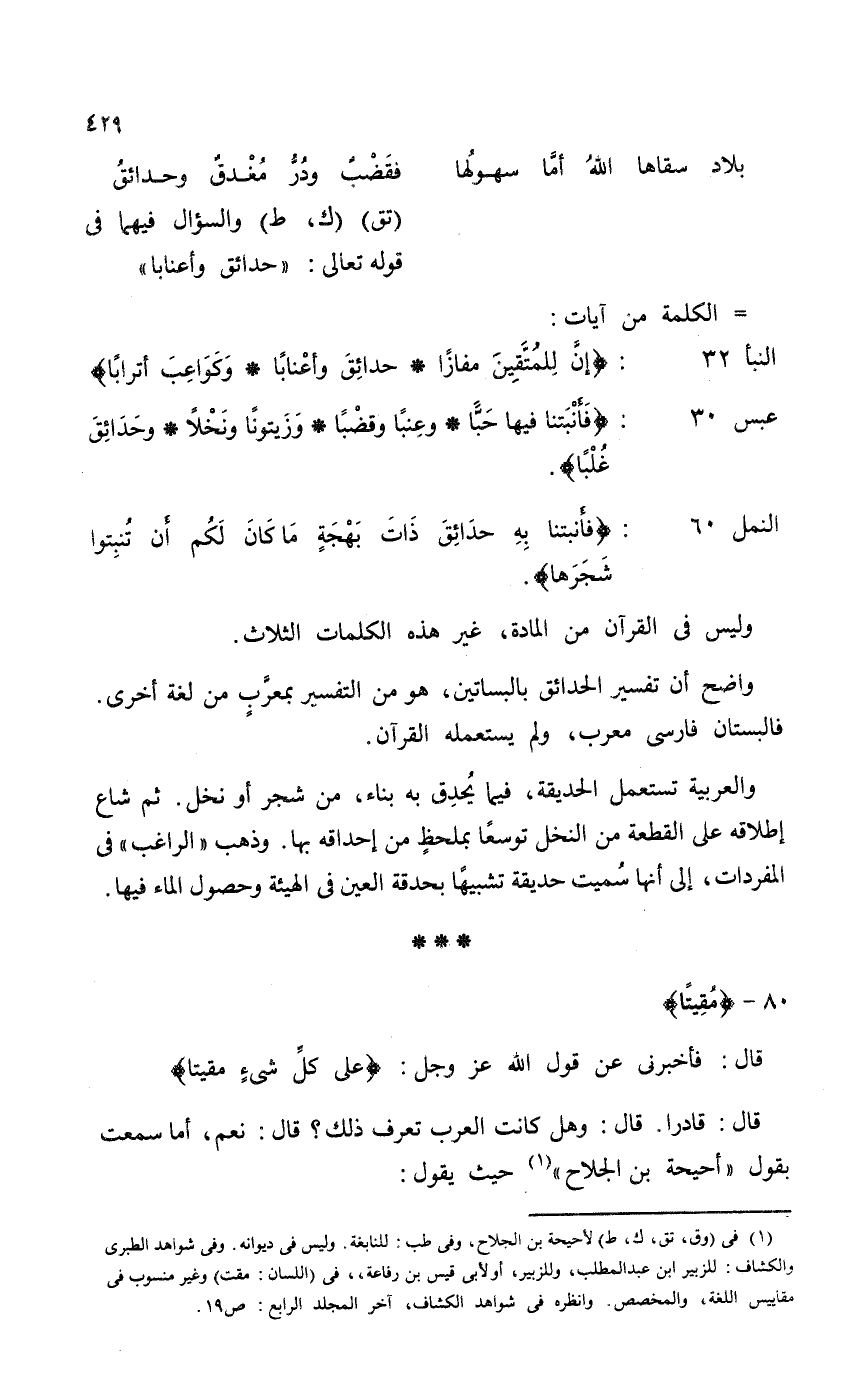 ٤٢٩
بلاد سقاها اللهُ أمَّا سهـولُها فقَضْبٌ ودُرٌّ مُغْـدقٌ وحـدائقُ
(تق) (ك، ط) والسؤال فيهما فى
قوله تعالى : «حدائق وأعنابا»
= الكلمة من آيات :
النبأ ٣٢ : ﴿إنَّ لِلمُتَّقِينَ مفازًا * حدائِقَ وأعْنابًا * وَكَوَاعِبَ أترابًا﴾
عبس ٣٠ : ﴿فَأَنْبَتنا فيها حَبًّا * وعِنبًا وقضْبًا * وَزَيتونًا ونَخْلاً * وحَدَائِقَ
غُلْبًا﴾ .
النمل ٦٠ : ﴿فأَنبتنا بِهِ حدَائِقَ ذَاتَ بَهْجَةٍ مَا كَانَ لَكُم أَن تُنبِتوا
شَجَرَها﴾ .
وليس فى القرآن من المادة، غير هذه الكلمات الثلاث .
واضح أن تفسير الحدائق بالبساتين، هو من التفسير بمعرَّبٍ من لغة أخرى .
فالبستان فارسى معرب، ولم يستعمله القرآن .
والعربية تستعمل الحديقة، فيما يُحدِق به بناء، من شجر أو نخل . ثم شاع
إطلاقه على القطعة من النخل توسعًا بملحظٍ من إحداقه بها . وذهب «الراغب» فى
المفردات، إلى أنها سُميت حديقة تشبيهًا بحدقة العين فى الهيئة وحصول الماء فيها .
* * *
٨٠ – ﴿مُقِيتًا﴾
قال : فأخبرنى عن قول الله عز وجل : ﴿على كلِّ شىءٍ مقيتا﴾
قال : قادرا . قال : وهل كانت العرب تعرف ذلك؟ قال : نعم، أما سمعت
بقول «أحيحة بن الجلاح»(١) حيث يقول :
(١) فى (وق، تق، ك، ط) لأحيحة بن الجلاح، وفى طب : للنابغة . وليس فى ديوانه . وفى شواهد الطبرى
والكشاف : للزبير ابن عبدالمطلب، وللزبير، أولأبى قيس بن رفاعة،، فى (اللسان : مقت) وغير منسوب فى
مقاييس اللغة، والمخصص . وانظره فى شواهد الكشاف، آخر المجلد الرابع : ص١٩ .